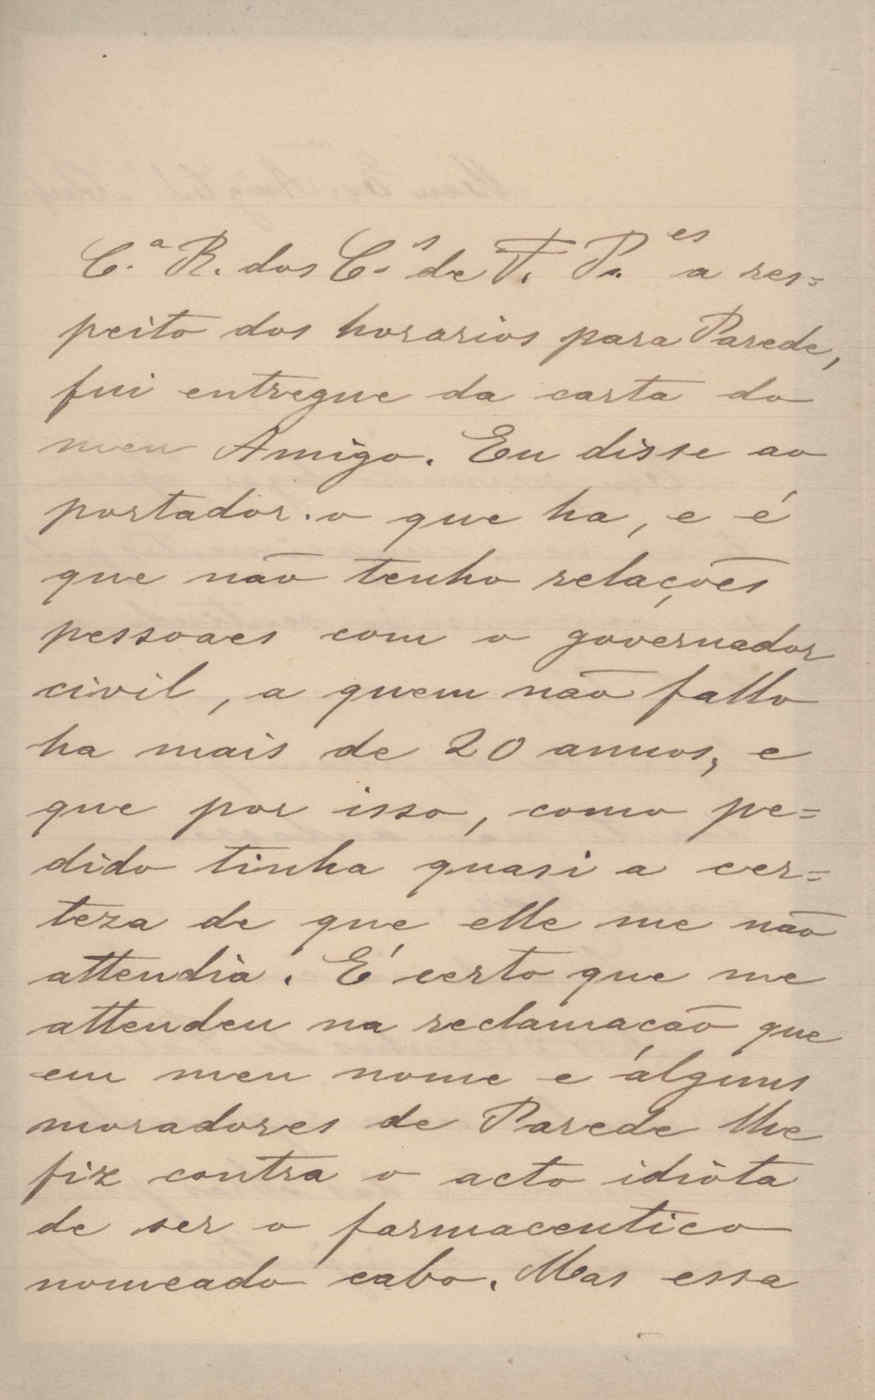 C.ª R. dos C.s de F. P.es a res=
peito dos horarios para Parede,
fui entregue da carta do
meu Amigo. Eu disse ao
portador. o que ha, e é
que não tenho relações
pessoaes com o governador
civil, a quem não fallo
ha mais de 20 annos, e
que por isso, como pe=
dido tinha quasi a cer=
teza de que elle me não
attendia. É certo que me
attendeu na reclamacão que
em meu nome e álguns
moradores de Parede lhe
fiz contra o acto idiòta
de ser o farmaceutico
nomeado cabo. Mas essa